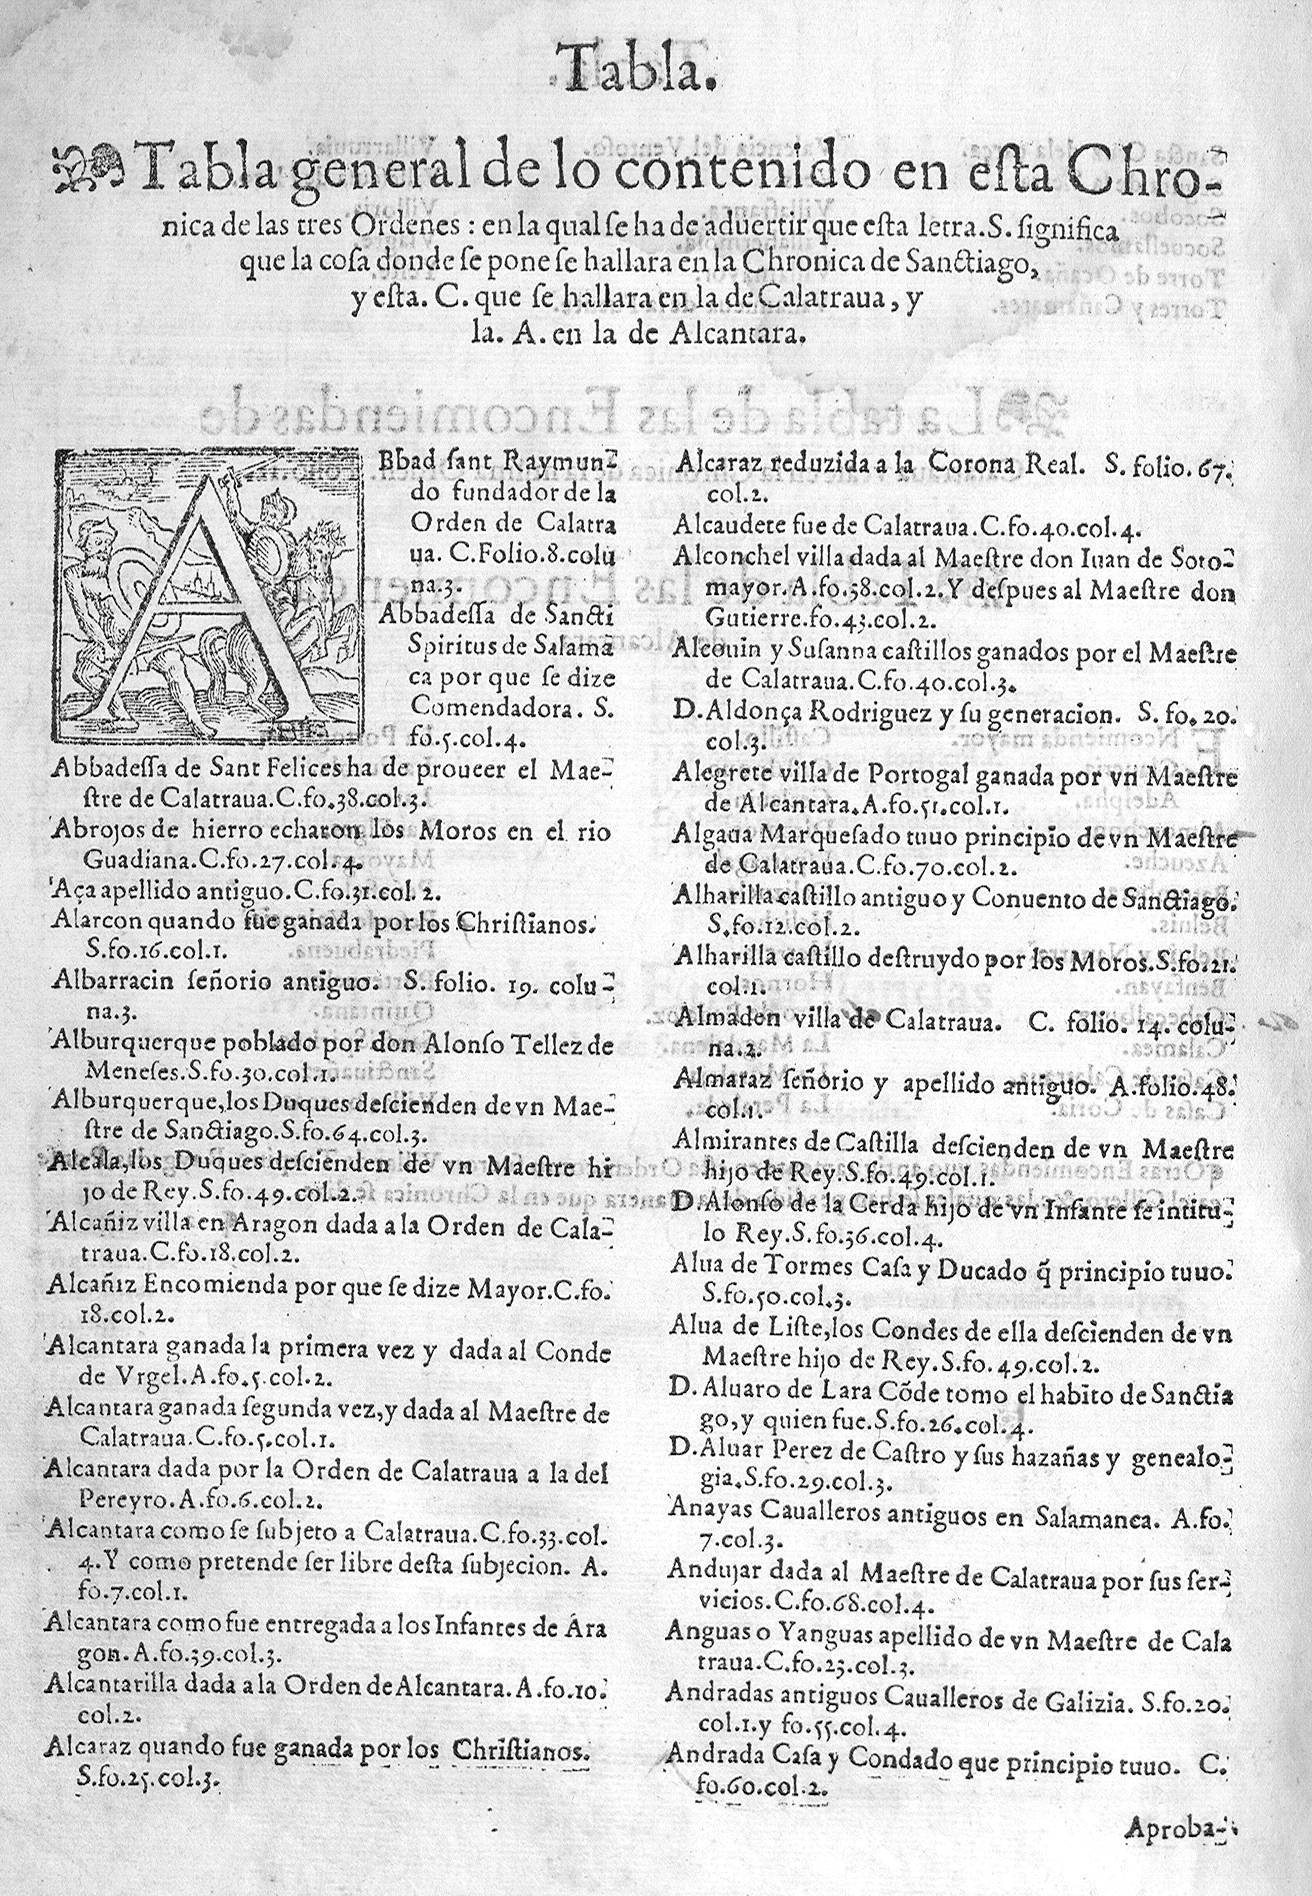 Tabla.
Tabla general de lo contenido en esta Chro-
nica de las tres Ordenes : en la qual se ha de aduertir que esta letra. S. significa
que la cosa donde se pone se hallara en la Chronica de Sanctiago,
y esta. C. que se hallara en la de Calatraua, y
la. A. en la de Alcantara.
ABbad sant Raymun-
do fundador de la
Orden de Calatra
ua. C.Folio.8.colu
na.3.
Abbadessa de Sancti
Spiritus de Salamã
ca por que se dize
Comendadora. S.
fo.5.col.4.
Abbadessa de Sant Felices ha de proueer el Mae-
stre de Calatraua.C.fo.38.col.3.
Abrojos de hierro echaron los Moros en el rio
Guadiana.C.fo.27.col.4.
Aça apellido antiguo.C.fo.31.col.2.
Alarcon quando fue ganada por los Christianos.
S.fo.16.col.1.
Albarracin señorio antiguo. S. folio. 19. colu-
na.3.
Alburquerque poblado por don Alonso Tellez de
Meneses.S.fo.30.col.1.
Alburquerque,los Duques descienden de vn Mae-
stre de Sanctiago.S.fo.64.col.3.
Alcala,los Duques descienden de vn Maestre hi
jo de Rey.S.fo.49.col.2.
Alcañiz villa en Aragon dada a la Orden de Cala-
traua.C.fo.18.col.2.
Alcañiz Encomienda por que se dize Mayor.C.fo.
18.col.2.
Alcantara ganada la primera vez y dada al Conde
de Vrgel.A.fo.5.col.2.
Alcantara ganada segunda vez,y dada al Maestre de
Calatraua.C.fo.5.col.1.
Alcantara dada por la Orden de Calatraua a la del
Pereyro.A.fo.6.col.2.
Alcantara como se subjeto a Calatraua.C.fo.33.col.
4.Y como pretende ser libre desta subjecion. A.
fo.7.col.1.
Alcantara como fue entregada a los Infantes de Ara
gon.A.fo.39.col.3.
Alcantarilla dada a la Orden de Alcantara.A.fo.10.
col.2.
Alcaraz quando fue ganada por los Christianos.
S.fo.25.col.3.
Alcaraz reduzida a la Corona Real. S. folio. 67.
col.2.
Alcaudete fue de Calatraua.C.fo.40.col.4.
Alconchel villa dada al Maestre don Iuan de Soto-
mayor.A.fo.38.col.2.Y despues al Maestre don
Gutierre.fo.43.col.2.
Alcouin y Susanna castillos ganados por el Maestre
de Calatraua.C.fo.40.col.3.
D.Aldonça Rodriguez y su generacion. S. fo.20.
col.3.
Alegrete villa de Portogal ganada por vn Maestre
de Alcantara.A.fo.51.col.1.
Algaua Marquesado tuuo principio de vn Maestre
de Calatraua.C.fo.70.col.2.
Alharilla castillo antiguo y Conuento de Sanctiago.
S.fo.12.col.2.
Alharilla castillo destruydo por los Moros.S.fo.21.
col.1.
Almaden villa de Calatraua. C. folio. 14. colu-
na.2.
Almaraz señorio y apellido antiguo. A.folio.48.
col.1.
Almirantes de Castilla descienden de vn Maestre
hijo de Rey.S.fo.49.col.1.
D.Alonso de la Cerda hijo de vn Infante se intitu-
lo Rey.S.fo.36.col.4.
Alua de Tormes Casa y Ducado q̃ principio tuuo.
S.fo.50.col.3.
Alua de Liste,los Condes de ella descienden de vn
Maestre hijo de Rey.S.fo.49.col.2.
D.Aluaro de Lara Cõde tomo el habito de Sanctia
go,y quien fue.S.fo.26.col.4.
D.Aluar Perez de Castro y sus hazañas y genealo-
gia.S.fo.29.col.3.
Anayas Caualleros antiguos en Salamanca. A.fo.
7.col.3.
Andujar dada al Maestre de Calatraua por sus ser-
vicios.C.fo.68.col.4.
Anguas o Yanguas apellido de vn Maestre de Cala
traua.C.fo.23.col.3.
Andradas antiguos Caualleros de Galizia. S.fo.20.
col.1.y fo.55.col.4.
Andrada Casa y Condado que principio tuuo. C.
fo.60.col.2.
Aproba-